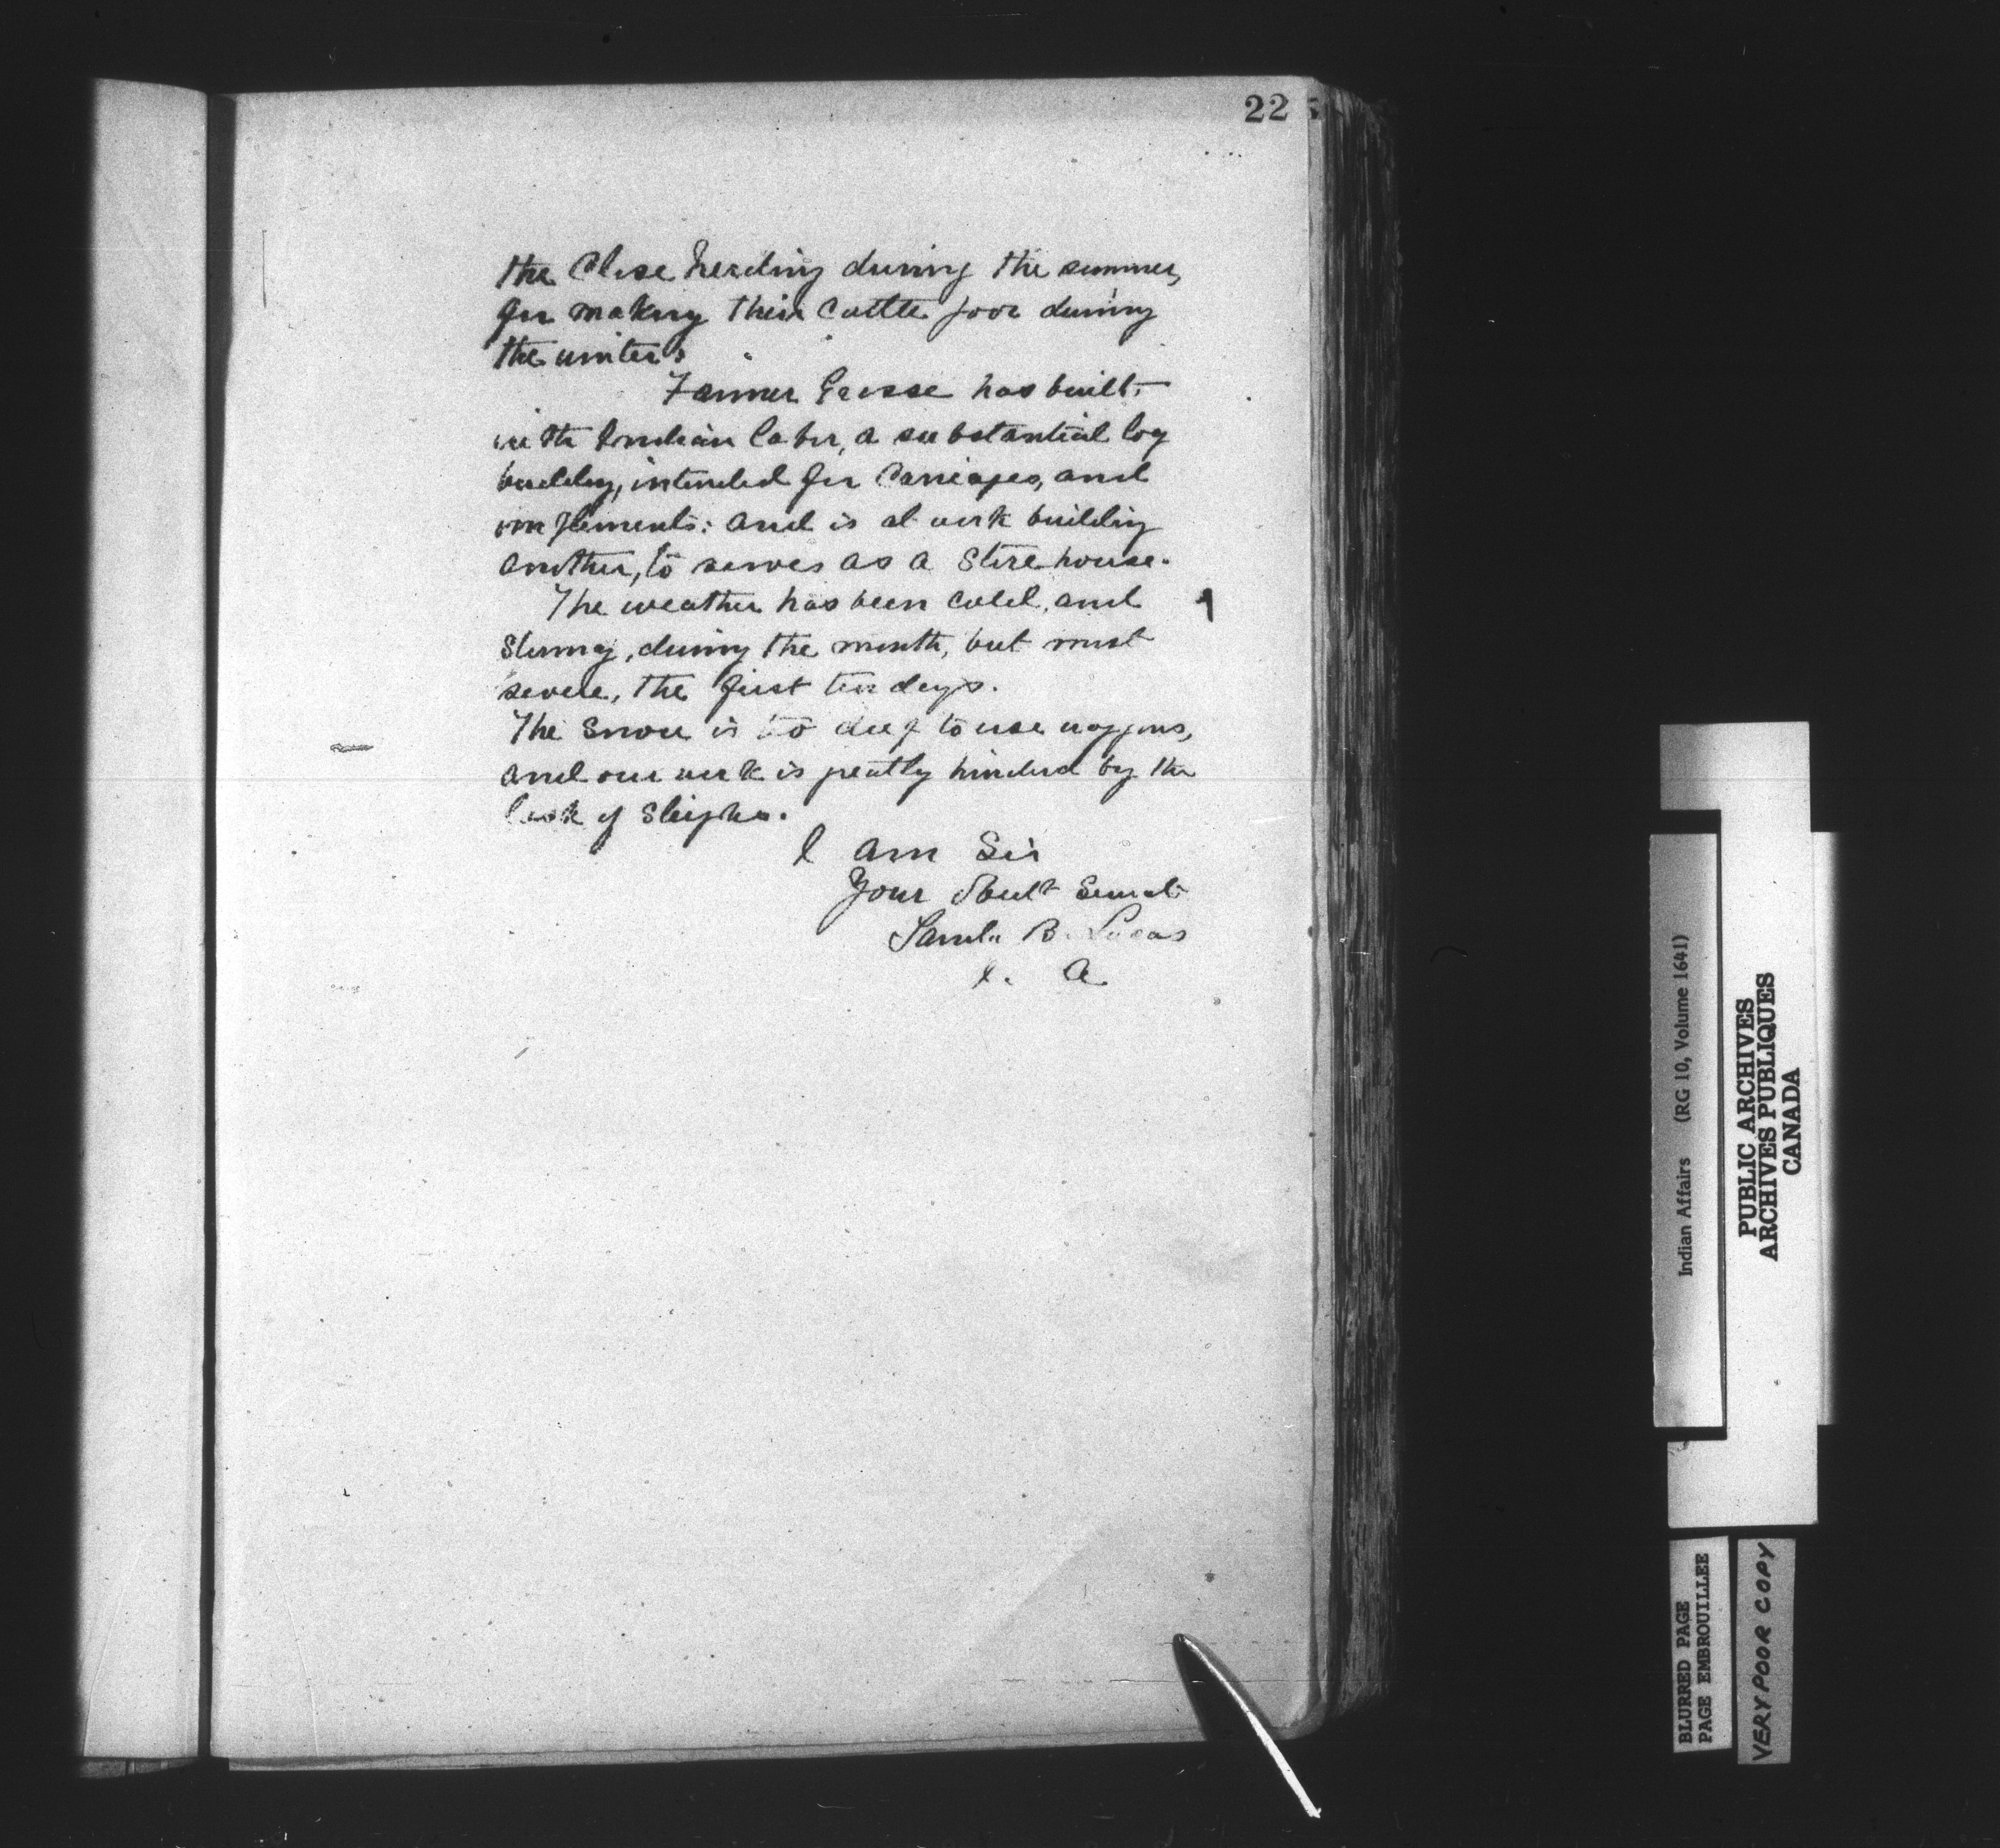 22
the Close herding during the summer,
for making their Cattle poor during
the winter.
Farmer has built,
with Indian labor, a substantial log
building, intended for Carriages, and
implements: and is at work building
another, to serves as a Store house.
The weather has been cold, and
Stormy, during the month, but most
severe, the first ten days.
The Snow is to deep to use waggons,
and our work is greatly hindered by the
lack of Sleighs.
I am Sir
Your Obedt Servant
B. Lucas
I. A
Indian Affairs (RG 10, Volume 1641)
PUBLIC ARCHIVES
ARCHIVES PUBLIQUES
CANADA
BLURRED PAGE
PAGE EMBROUILLEE
VERY POOR COPY